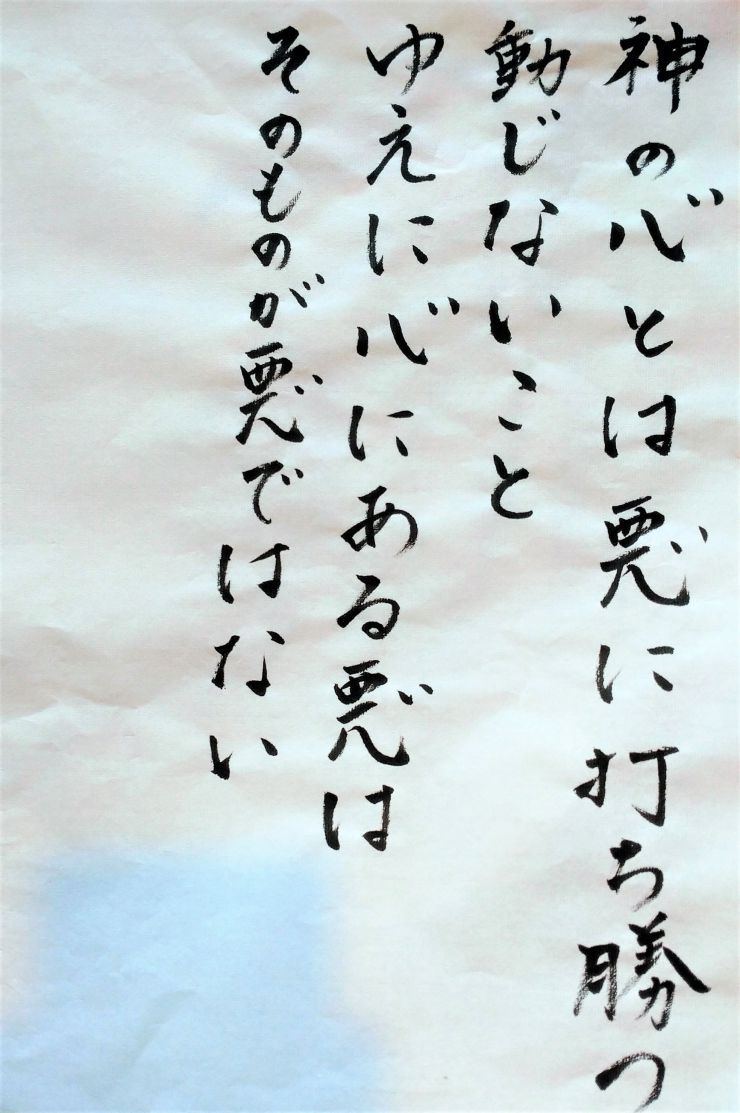 神の心とは悪に打ち勝つ
動じないこと
ゆえに心にある悪は
そのものが悪ではない